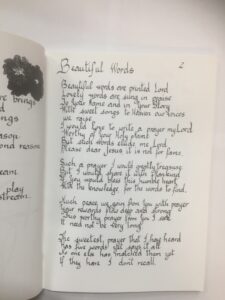 e brings
d
ngs
ason
ond reason
play
stream
2
Beautiful Words
Beautiful words are printed Lord
Lovely words are sung in praise
To your name and in your Story
With sweet songs to Heaven our voices
we raise.
I would love to write a prayer my Lord
Worthy of your Holy plane
But such words elude me Lord
Please dear Jesus it is not for fame.
Such a prayer I would greatly treasure
But I would share it with Mankind
If you would bless this humble heart
With the knowledge, for the words to find.
Much peace we gain from you with prayer
Your rewards play deep and strong
This worthy prayer from you I seek
It need not be very long
The sweetest, prayer that I have heard
Has five words yet says it all
No one else has matched them yet
If they have I don't recall.